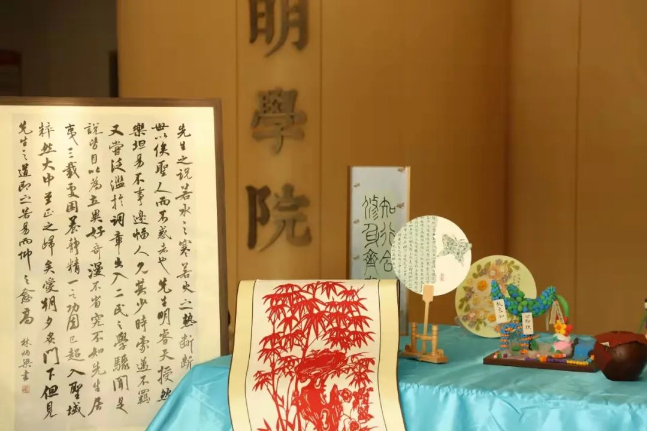 明學院
先生之说若水之寒若火之熱斷斷
世以俟聖人而不惑者也先生明睿天授然
樂坦易不事邊幅人見其少時豪邁不羈
又嘗泛濫於詞章出入二氏之學驟聞是
説皆目以為立異好奇漫不省究不知先生居
夷三載處困養静精一之功固已超入聖域
粹然大中至正之歸矣愛朝夕炙門下但見
先生之道即之若易而仰之愈高
知行合
修身齊